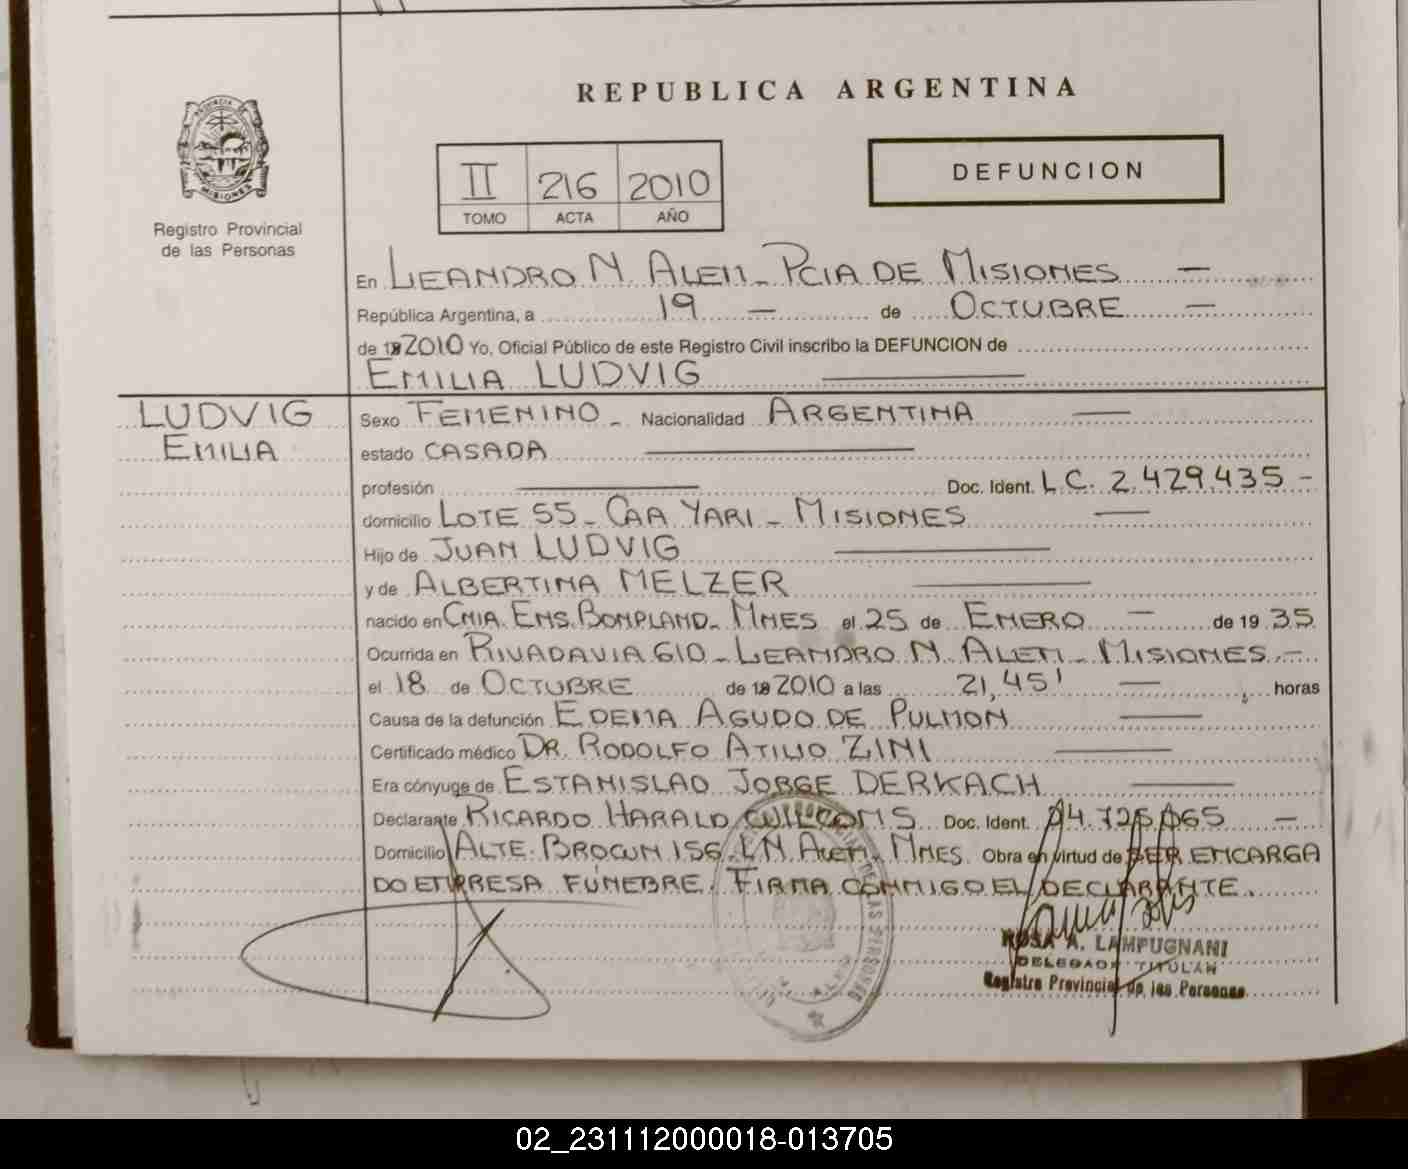 REPUBLICA ARGENTINA
PROVINCIA DE
MISIONES
Registro Provincial
de las Personas
II 216 2010
TOMO ACTA AÑO
DEFUNCION
En LEANDRO N. ALEM - PCIA DE MISIONES —
República Argentina, a 19 — de OCTUBRE —
de 2010 Yo, Oficial Público de este Registro Civil inscribo la DEFUNCION de
EMILIA LUDVIG
LUDVIG
EMILIA
Sexo FEMENINO - Nacionalidad ARGENTINA —
estado CASADA —
profesión — Doc. Ident. L.C. 2.429.435 -
domicilio LOTE 55 - CAA YARI - MISIONES —
Hijo de JUAN LUDVIG —
y de ALBERTINA MELZER —
nacido en CNIA. EMS. BOMPLAND - MNES el 25 de ENERO — de 19 35
Ocurrida en RIVADAVIA 610 - LEANDRO N. ALEM - MISIONES. —
el 18 de OCTUBRE de 2010 a las 21,45' — horas
Causa de la defunción EDEMA AGUDO DE PULMON —
Certificado médico DR. RODOLFO ATILIO ZINI —
Era cónyuge de ESTANISLAO JORGE DERKACH —
Declarante RICARDO HARALD Doc. Ident. —
Domicilio ALTE. BROWN 156 - L.N. ALEM - MNES. Obra en virtud de SER ENCARGA
DO EMPRESA FÚNEBRE. FIRMA CONMIGO EL DECLARANTE.
ROSA A. LAMPUGNANI
DELEGADA TITULAR
Registro Provincial de las Personas
02_231112000018-013705